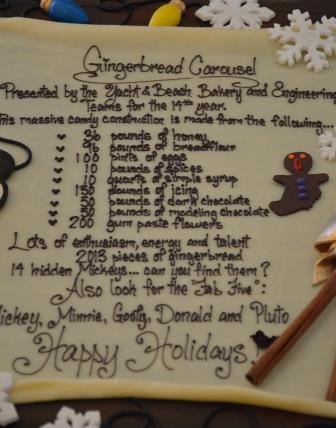 Gingerbread Carousel
Presented by the Yacht & Beach Bakery and Engineering
Teams for the 14th year.
This massive candy construction is made from the following...
36 pounds of honey
96 pounds of breadflour
100 pints of eggs
10 pounds of spices
10 quarts of simple syrup
150 pounds of icing
50 pounds of dark chocolate
50 pounds of modeling chocolate
200 gum paste flowers
Lots of enthusiasm, energy and talent
2013 pieces of gingerbread
14 hidden Mickeys... can you find them?
Also look for the "Fab Five":
Mickey, Minnie, Goofy, Donald and Pluto
Happy Holidays!